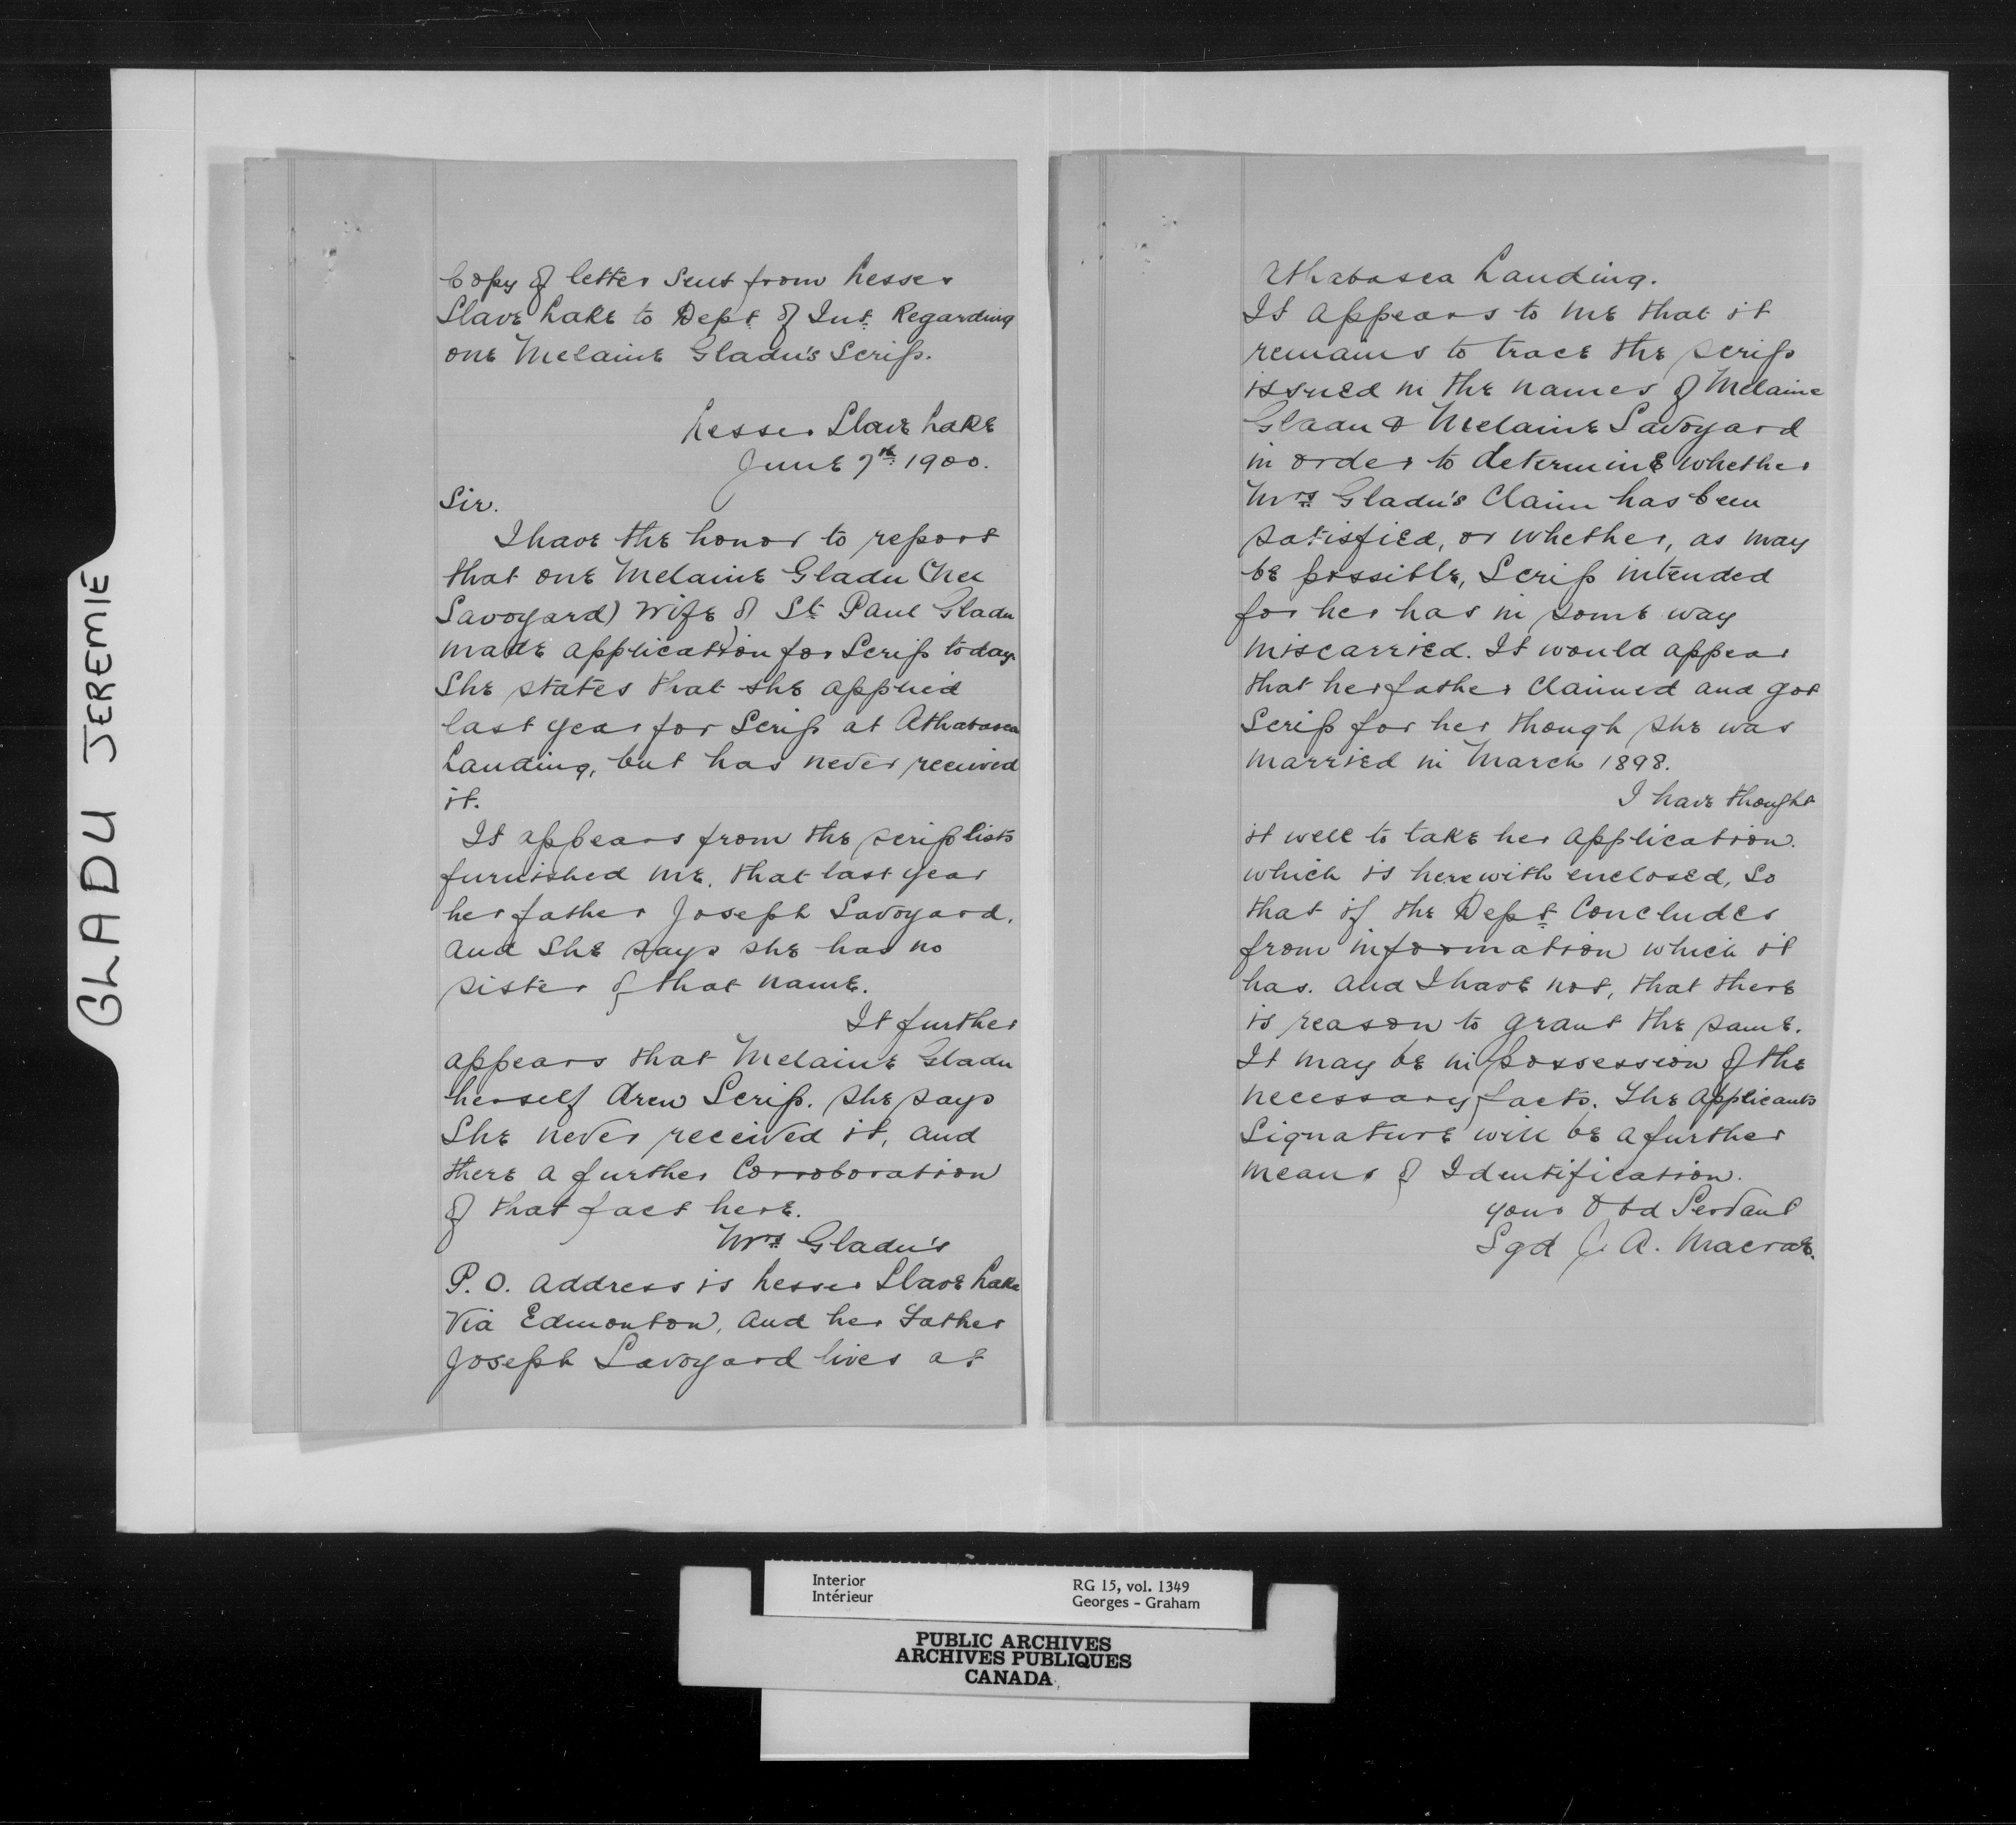 GLADU JEREMIE
Copy of letter Sent from Lesser
Slave Lake to Dept of Int. Regarding
one Melaine Gladu's Scrip.
Lesser Slave Lake
June 7th 1900.
Sir.
I have the honor to report
that one Melaine Gladu (Nee
Savoyard) Wife of St. Paul Gladu
made application for Scrip today.
She states that she applied
last year for Scrip at Athabasca
Landing, but has never received
it.
It appears from the scrip lists
furnished me. that last year
her father Joseph Savoyard.
and She says she has no
sister of that name.
It further
appears that Melaine Gladu
herself drew Scrip. she says
She never received it, and
there a further Corroboration
of that fact here.
Mrs Gladu's
P.O. address is Lesser Slave Lake
Via Edmonton, and her Father
Joseph Savoyard lives at
Athabasca Landing.
It appears to me that it
remains to trace the scrip
issued in the names of Melaine
Gladu & Melaine Savoyard
in order to determine whether
Mrs Gladu's Claim has been
satisfied, or whether, as may
be possible, Scrip intended
for her has in some way
miscarried. It would appear
that her father Claimed and got
Scrip for her though she was
married in March 1898.
I have thought
it well to take her application.
which is herewith enclosed, So
that if the Dept Concludes
from information which it
has. and I have not, that there
is reason to grant the same.
It may be in possession of the
necessary facts. The applicants
Signature will be a further
means of Identification.
your Obd Servant
Sgd J. A. Macrae.
Interior
Intérieur
RG 15, vol. 1349
Georges - Graham
PUBLIC ARCHIVES
ARCHIVES PUBLIQUES
CANADA